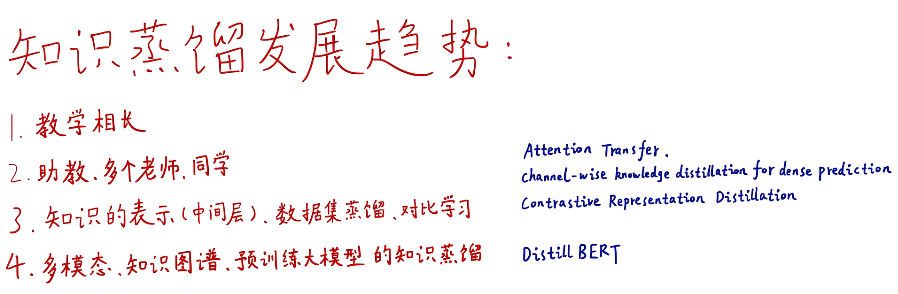 知识蒸馏发展趋势：
1. 教学相长
2. 助教、多个老师、同学
3. 知识的表示(中间层)、数据集蒸馏、对比学习
4. 多模态、知识图谱、预训练大模型的知识蒸馏
Attention Transfer.
Channel-wise knowledge distillation for dense prediction
Contrastive Representation Distillation
Distill BERT